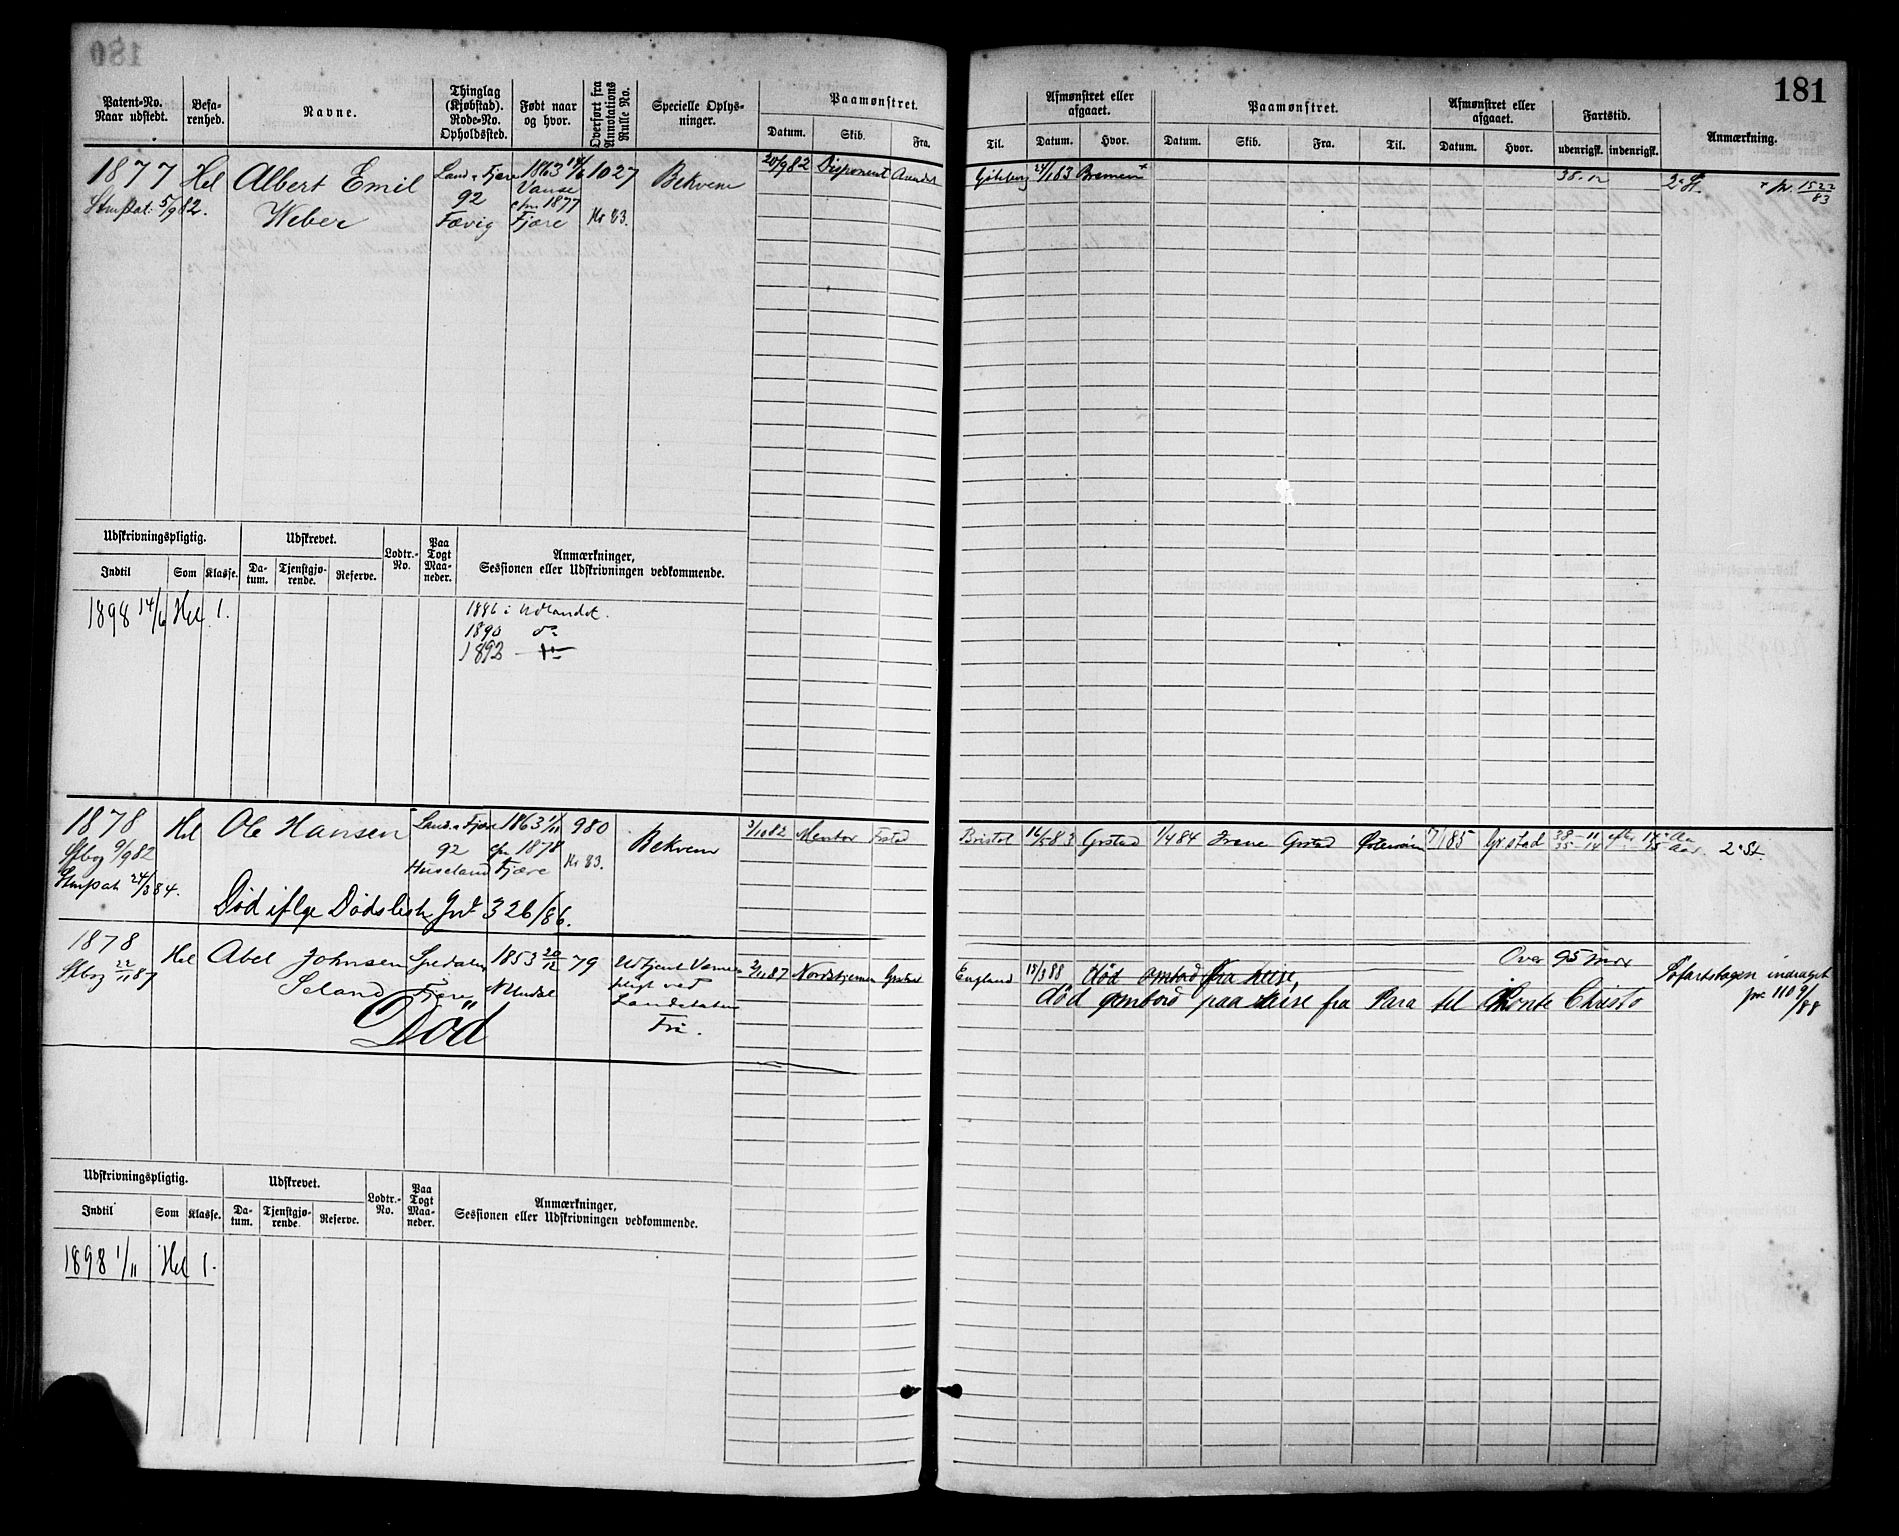 181
Patent-No.
Naar udstedt.
Befa-
renhed.
Navne.
Thinglag
(Kjøbstad).
Rode-No.
Opholdssted.
Født naar
og hvor.
Overført fra
Annotations
Rulle No.
Specielle Oplys-
ninger.
Paamønstret.
Datum.
Skib.
Fra.
Til.
Afmønstret eller
afgaaet.
Datum.
Hvor.
Paamønstret.
Datum.
Skib.
Fra.
Til.
Afmønstret eller
afgaaet.
Datum.
Hvor.
Fartstid.
udenrigsk.
indenrigsk.
Anmærkning.
1877
5/9 82.
Hel
Albert Emil
Weber
Land. Fjære
92
Fævig
1863 14/6
Vanse
efn 1877
Fjære
1027
Kr 83.
Bekvem
20/9 82
Disponent
Arendal
Gøteborg
24/1 83
Bremen +
38-12
+ pr. 1522/83
Udskrivningspligtig.
Udskrevet.
Lodtr.-
No.
Paa
Togt
Maa-
neder.
Anmærkninger,
Sessionen eller Udskrivningen vedkommende.
Indtil
Som
Klasse.
Da-
tum.
Tjenstgjø-
rende.
Reserve.
1898 14/6
Hel
1.
1886 i Udlandet.
1890 do
1892
1878
9/9 82
24/3 84.
Hel
Ole Hansen
Land. Fjære
92
Huseland
1863 1/11
efn 1878
Fjære
980
Kr 83.
Bekvem
3/10 82
Mentor
Bristol
16/5 83
Grstad
1/4 84
Irene
Grstad
7/1 85
Grstad
38-11
35-14
efter
2den St.
Død iflge Dødsliste Jnl 326/86.
1878
22/11 87
Hel
Abel Johnsen
Seland
Fjære
1853 20/12
79
Udtjent Værne-
pligt ved
Landetaten
Fri.
Død
2/11 87
Nordstjernen
England
15/3 88
død ombord fra reise,
død ombord paa reise fra Para til Monte Christo
Over 95 mdr
Søfartsbogen inddraget
pr 110 9/88
Udskrivningspligtig.
Udskrevet.
Lodtr.-
No.
Paa
Togt
Maa-
neder.
Anmærkninger,
Sessionen eller Udskrivningen vedkommende.
Indtil
Som
Klasse.
Da-
tum.
Tjenstgjø-
rende.
Reserve.
1898 1/11
Hel
1.